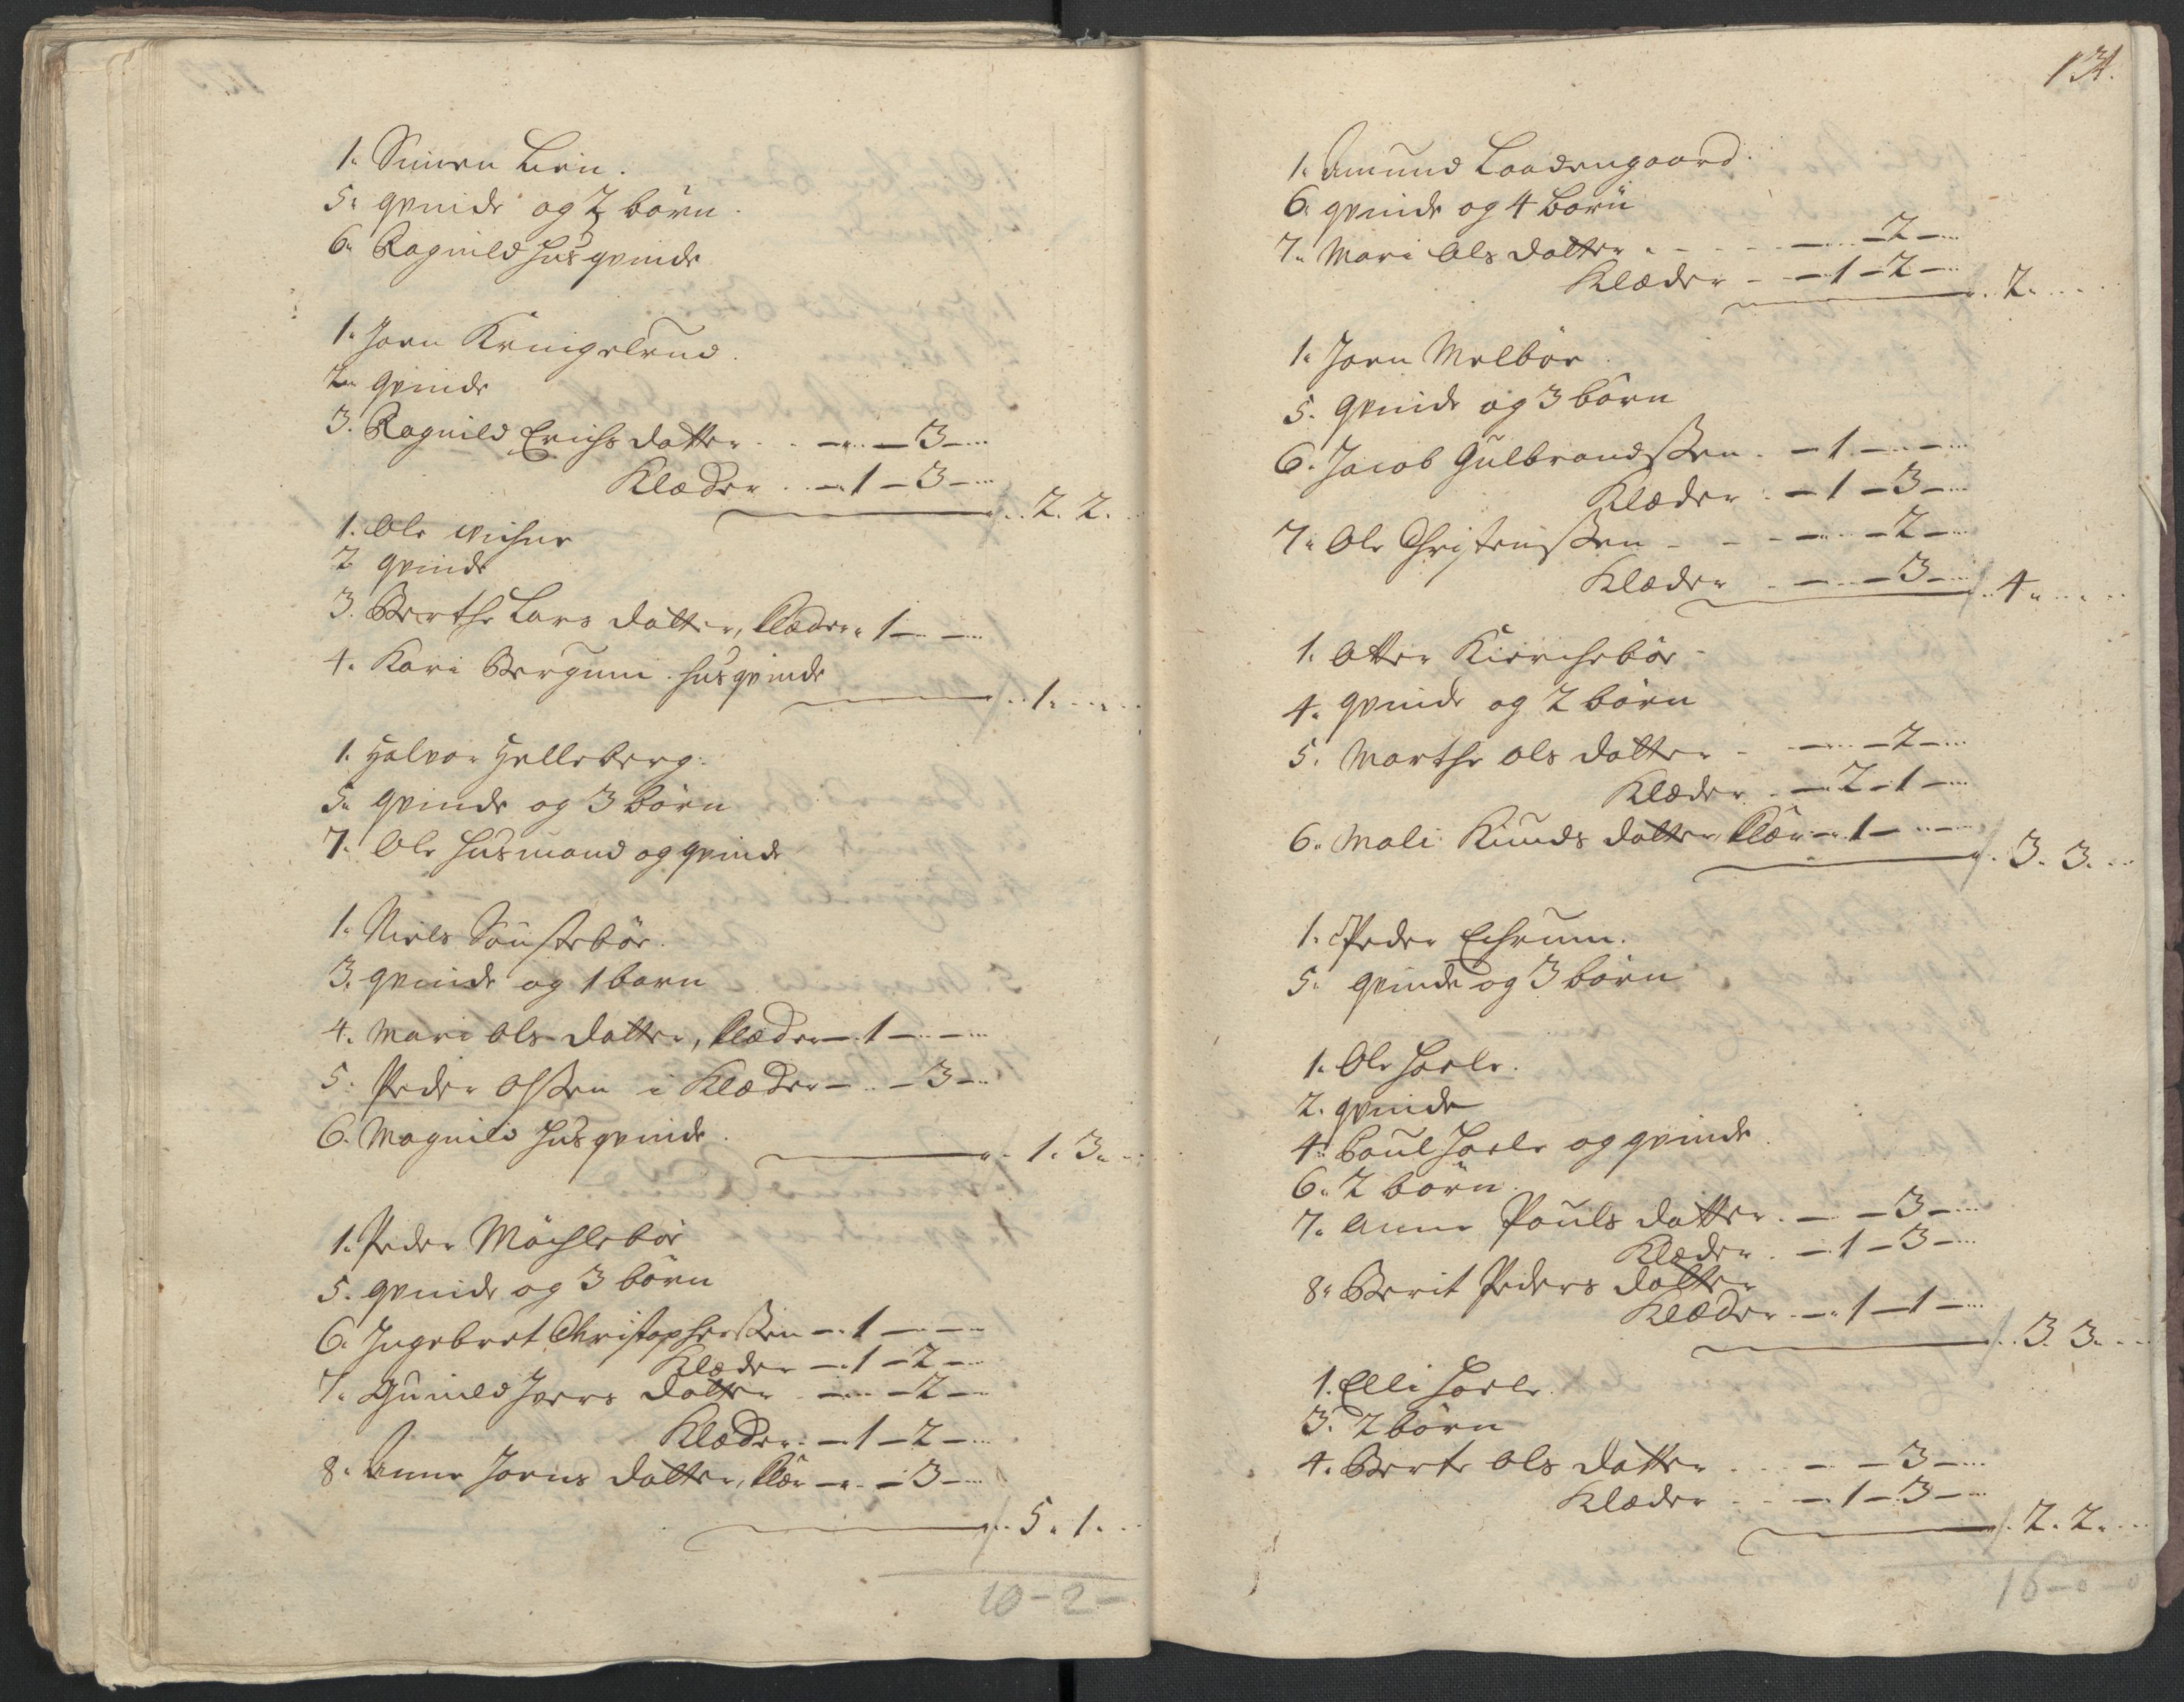 1. Simen Lien.
5. qvinde og 2 börn.
6. Ragnild huusqvinde
1. Joen Kringelrud.
2. qvinde
3. Ragnild Erichs datter . . — „ — 3 —
Klæder . . — 1 — 3 —
2. 2.
1. Ole
2 qvinde
3. Berthe Lars datter, Klæder „ 1 — —
4. Kari Bergum. husqvinde
1.
1. Halvor Helleberg.
5. qvinde og 3 börn
7. Ole husmand og qvinde
1. Niels Sönstebör.
3. qvinde og 1 barn
4. Mari Ols datter, Klæder — 1 — —
5. Peder Olssen i Klæder — — 3 —
6. Magnild husqvinde.
1. 3.
1. Peder Möchlebör
5. qvinde og 3 börn
6. Ingebret Christophersen — 1 — —
Klæder — 1 — 2 —
7. Gunild Ivers datter — — 2 —
Klæder. — 1 — 2 —
8. Anne Joens datter, Klær — — 3 —
5. 1.
10 - 2 -
131.
1. Amund Laadengaard.
6. qvinde og 4 börn
7. Mari Ols datter . - - - — — 2 —
Klæder - — 1 — 2 —
2.
1. Joen Melböe.
5. qvinde og 3 börn
6. Jacob Gulbrandssen. — 1 — —
Klæder . — 1 — 3 —
7. Ole Christenssen - - - — — 2 —
Klæder . — — 3 —
4.
1. Otter Kierchebör
4. qvinde og 2 börn
5. Marthe Ols datter - — — 2 —
Klæder — 2 — 1 —
6. Mali Knuds datter, Klær — 1 — —
3. 3.
1. Peder Echrum.
5. qvinde og 3 börn
1. Ole Hoele.
2. qvinde
4. Poul Hoele og qvinde.
6. 2 börn.
7. Anne Pouls datter. — — 3 —
Klæder. — 1 — 3 —
8. Berit Peders datter
Klæder. — 1 — 1 —
3. 3.
1. Elli Hoele.
3. 2 börn
4. Berte Ols datter . — — 3 —
Klæder - — 1 — 3 —
2. 2.
16 - 0 - 0